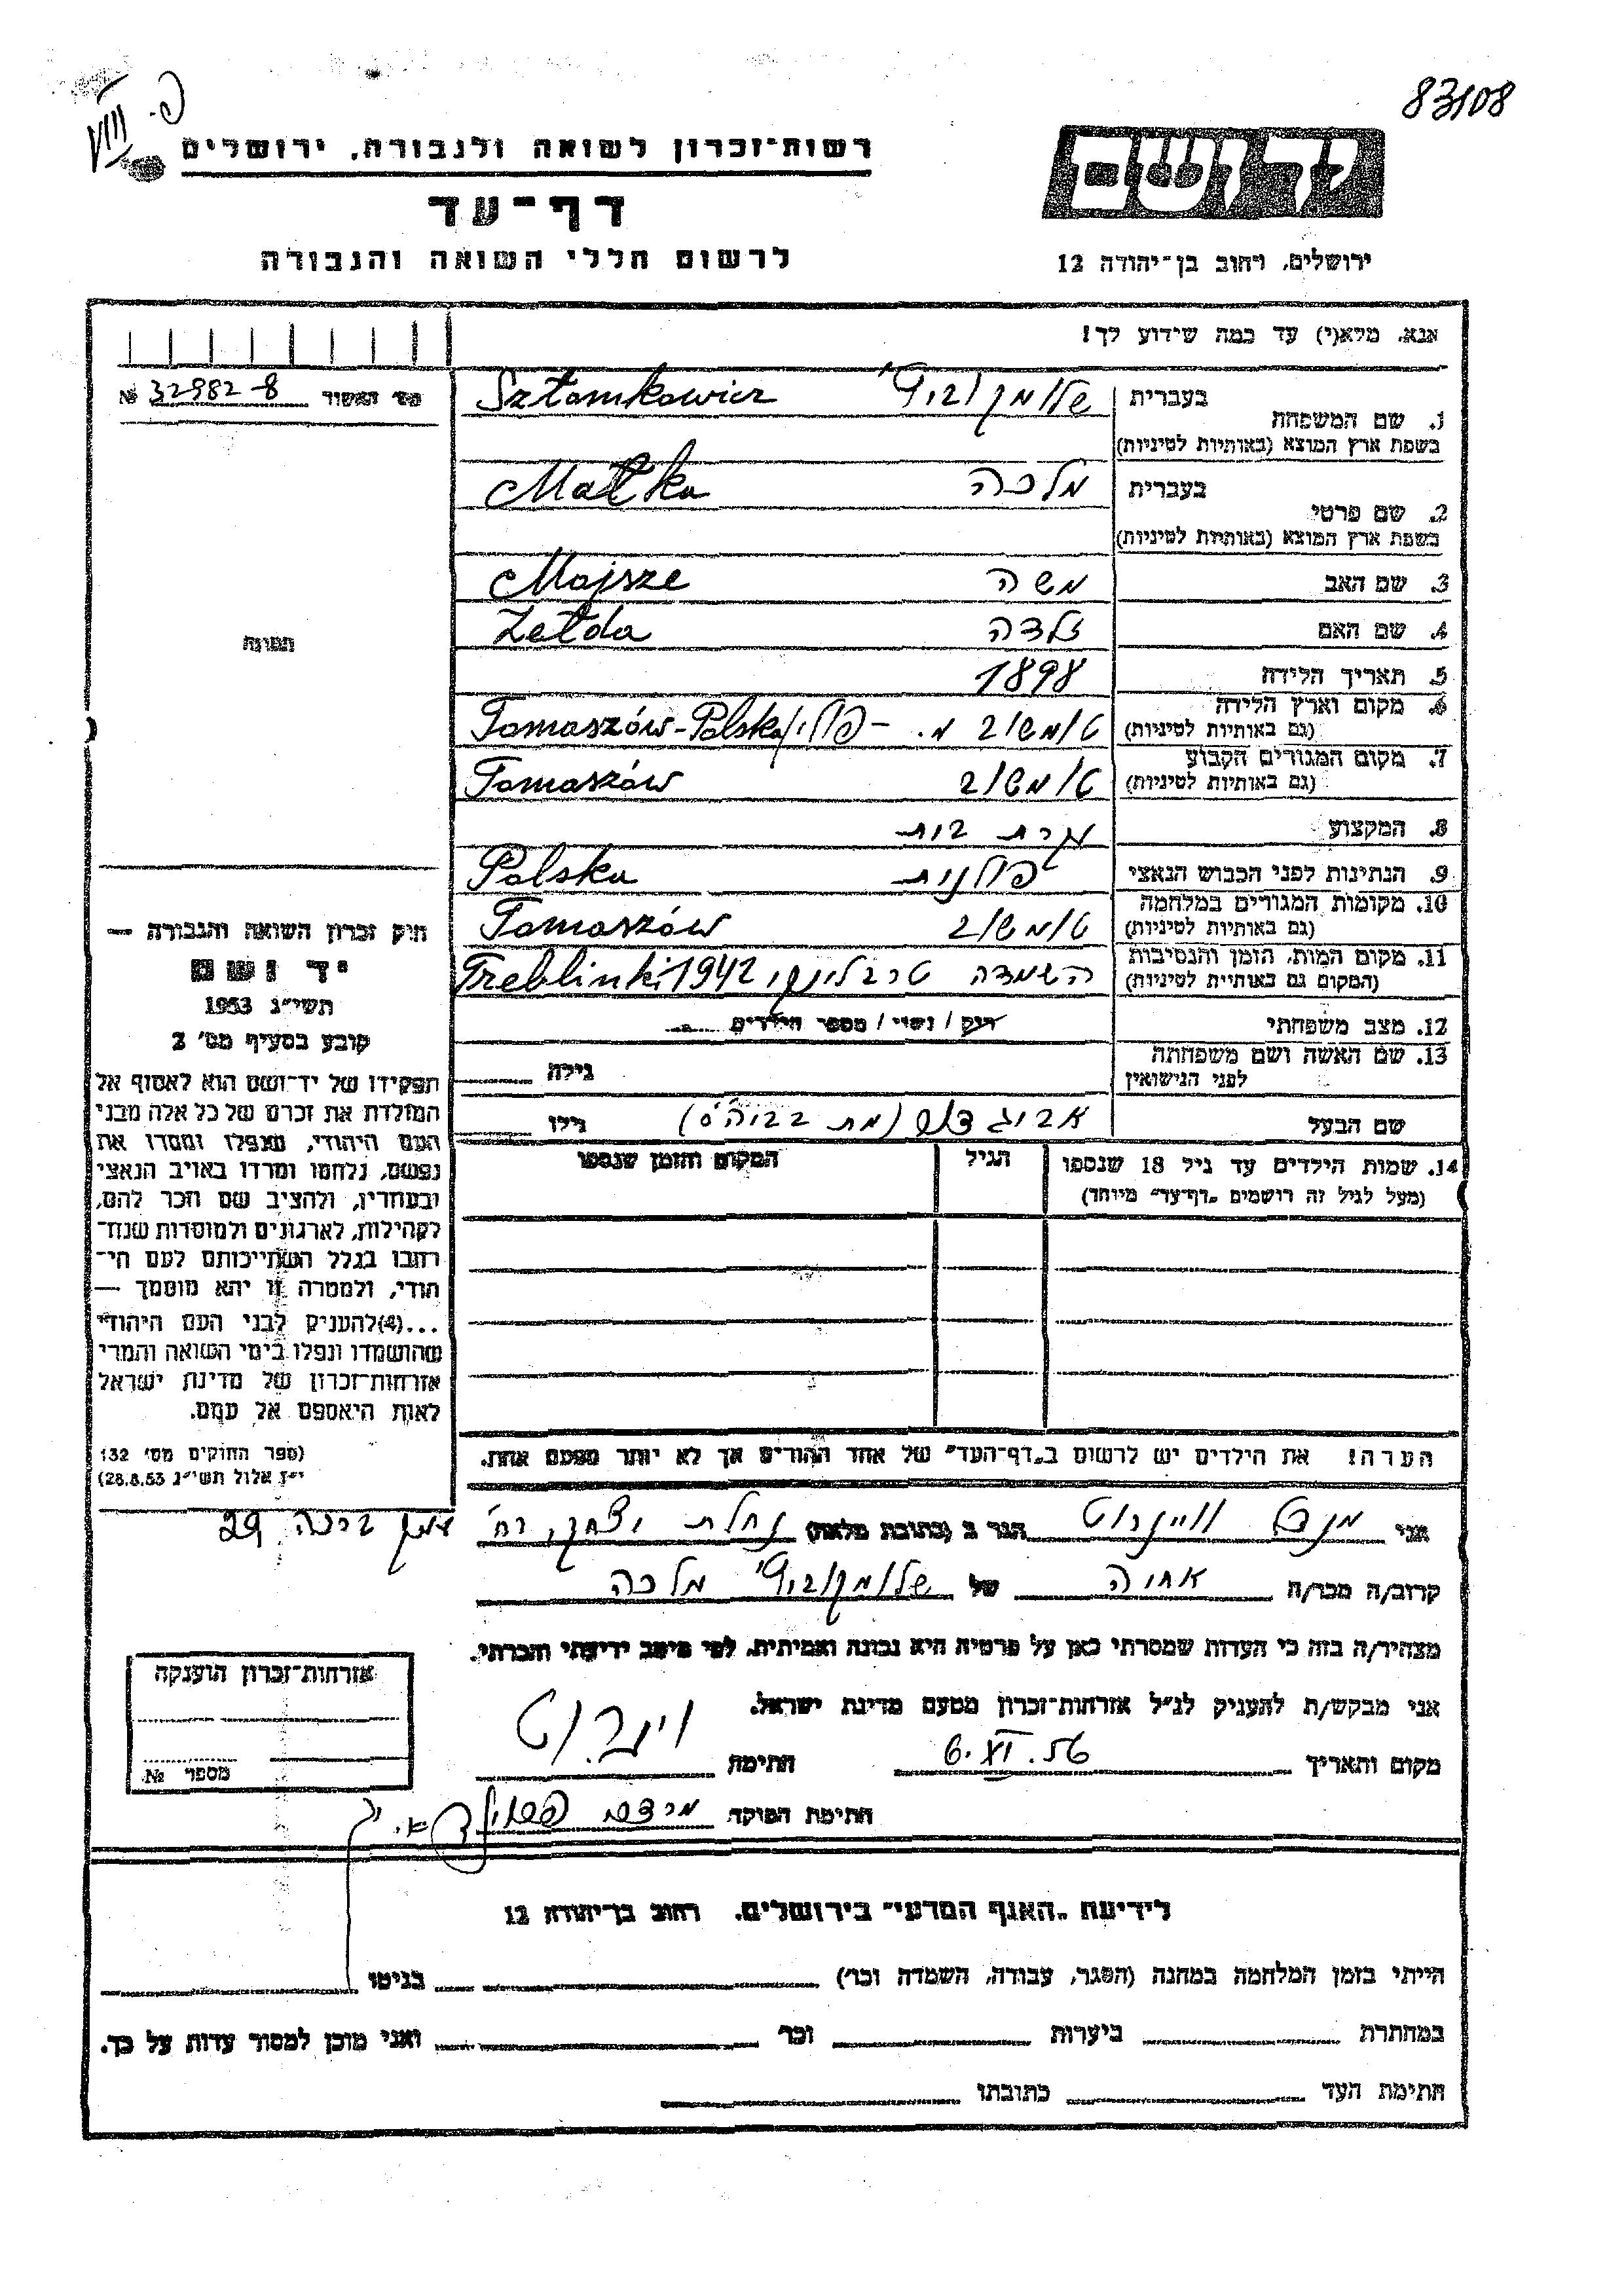 83108
פ. VIII
יד ושם
רשות־זכרון לשואה ולגבורה, ירושלים
דף־עד
לרשום חללי השואה והגבורה
ירושלים, רחוב בן־יהודה 12
אנא, מלא(י) עד כמה שידוע לך!
מס׳ האשור № 32982-8
1. שם המשפחה בעברית שלומקוביץ' Sztamkowicz
בשפת ארץ המוצא (באותיות לטיניות)
2. שם פרטי בעברית מלכה Małka
בשפת ארץ המוצא (באותיות לטיניות)
3. שם האב משה Majsze
4. שם האם זלדה Zełda
5. תאריך הלידה 1898
6. מקום וארץ הלידה (גם באותיות לטיניות) טומשוב מ. - פולין Tomaszów-Polska
7. מקום המגורים הקבוע (גם באותיות לטיניות) טומשוב Tomaszów
8. המקצוע עקרת בית
9. הנתינות לפני הכבוש הנאצי פולנית Polska
10. מקומות המגורים במלחמה (גם באותיות לטיניות) טומשוב Tomaszów
11. מקום המות, הזמן והנסיבות (המקום גם באותיות לטיניות) השמדה טרבלינקי 1942 Treblinki
12. מצב משפחתי רוק / נשוי / מספר הילדים
13. שם האשה ושם משפחתה לפני הנישואין גילה
שם הבעל אביגדור (מת בביה"ס) גילו
14. שמות הילדים עד גיל 18 שנספו הגיל המקום והזמן שנספו
(מעל לגיל זה רושמים „דף־עד״ מיוחד)
תמונה
חוק זכרון השואה והגבורה —
יד ושם
תשי״ג 1953
קובע בסעיף מס׳ 2
תפקידו של יד־ושם הוא לאסוף אל
המולדת את זכרם של כל אלה מבני
העם היהודי, שנפלו ומסרו את
נפשם, נלחמו ומרדו באויב הנאצי
ובעוזריו, ולהציב שם וזכר להם,
לקהילות, לארגונים ולמוסדות שנח־
רבו בגלל השתייכותם לעם הי־
הודי, ולמטרה זו יהא מוסמך —
...(4)להעניק לבני העם היהודי
שהושמדו ונפלו בימי השואה והמרי
אזרחות־זכרון של מדינת ישראל
לאות היאספם אל עמם.
(ספר החוקים מס׳ 132
י״ז אלול תשי״ג 28.8.53)
הערה! את הילדים יש לרשום ב„דף־העד״ של אחד ההורים אך לא יותר מפעם אחת.
אני מנדל ויינרוט הגר ב (כתובת מלאה) נחלת יצחק, רח' עמק ברכה 29
קרוב/ה מכר/ה אחיה של שלומקוביץ' מלכה
מצהיר/ה בזה כי העדות שמסרתי כאן על פרטיה היא נכונה ואמיתית, לפי מיטב ידיעתי והכרתי.
אני מבקש/ת להעניק לנ״ל אזרחות־זכרון מטעם מדינת ישראל.
מקום ותאריך 6.VI.56 חתימה
חתימת הפוקד
אזרחות־זכרון הוענקה
מספר №
לידיעת „האגף המדעי״ בירושלים, רחוב בן־יהודה 12
הייתי בזמן המלחמה במחנה (הסגר, עבודה, השמדה וכו׳) בגיטו
במחתרת ביערות וכו׳ ואני מוכן למסור עדות על כך.
חתימת העד כתובתו